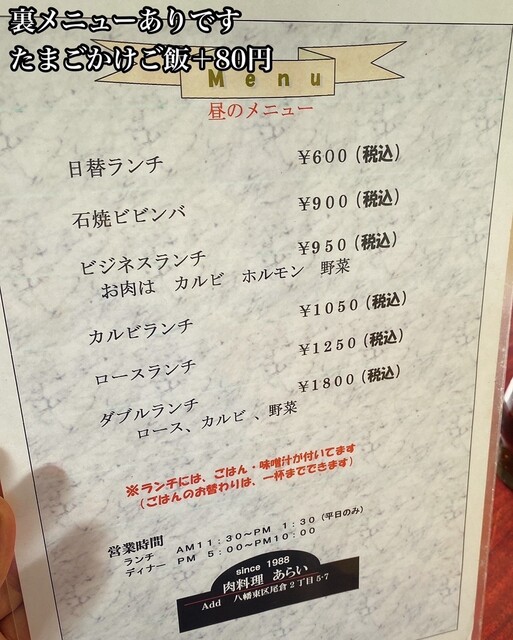 裏メニューありです
たまごかけご飯＋80円
Menu
昼のメニュー
日替ランチ ￥600（税込）
石焼ビビンバ ￥900（税込）
ビジネスランチ ￥950（税込）
お肉は カルビ ホルモン 野菜
カルビランチ ￥1050（税込）
ロースランチ ￥1250（税込）
ダブルランチ ￥1800（税込）
ロース、カルビ、野菜
※ランチには、ごはん・味噌汁が付いてます
（ごはんのお替わりは、一杯までできます）
営業時間
ランチ AM11：30～PM 1：30（平日のみ）
ディナー PM 5：00～PM10：00
since 1988
肉料理 あらい
Add 八幡東区尾倉2丁目5-7